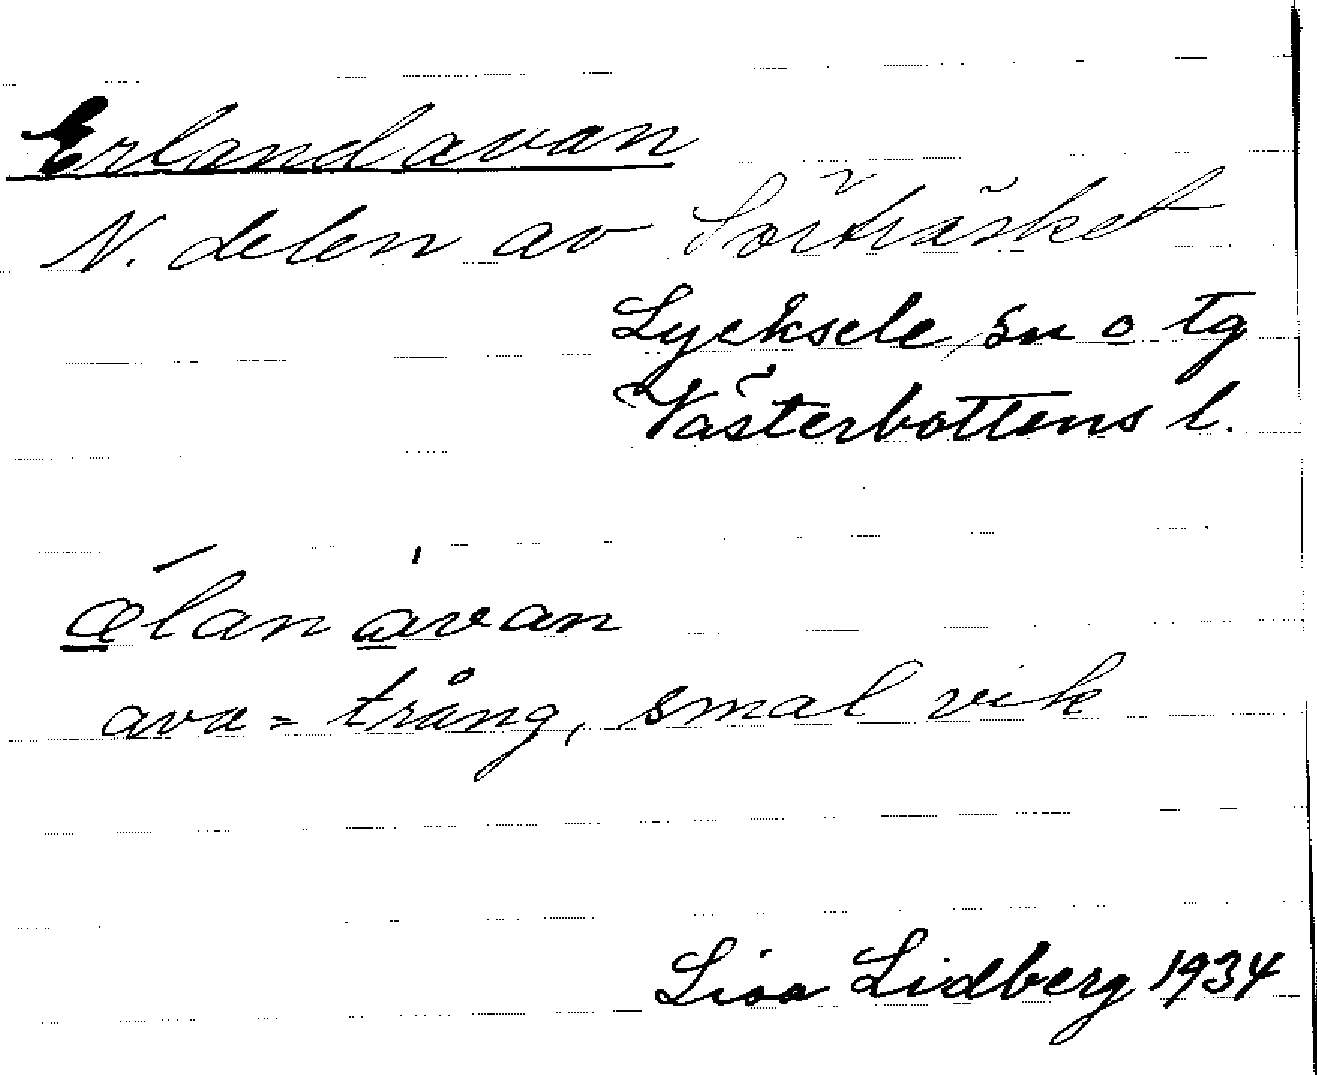 Erlandavan
N. delen av Sörträsket
Lycksele sn o tg
Västerbottens l.
ælan avan
ava = trång, smal vik
Lisa Lidberg 1934